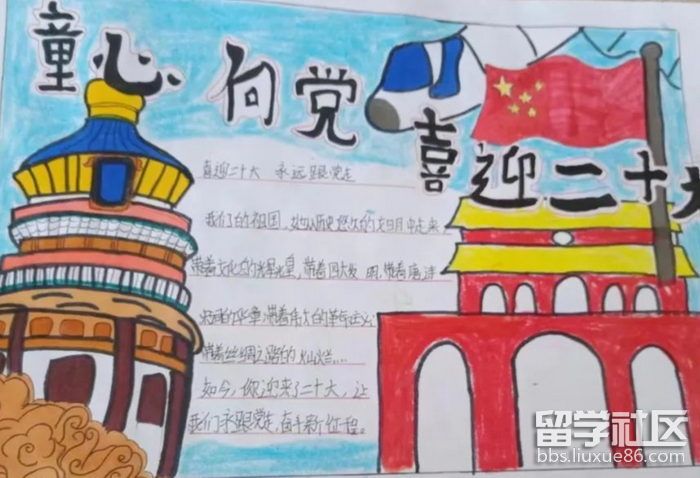 童心向党
喜迎二十大
喜迎二十大 永远跟党走
我们的祖国，她从历史悠久的岁月中走来，
带着文化的光辉，带着四大发明，带着唐诗
的华章，带着伟大的革命
带着丝绸之路的灿烂....
如今，你迎来了二十大，让
我们永跟党走，奋斗新征程。
留学社区
bbs.liuxue86.com